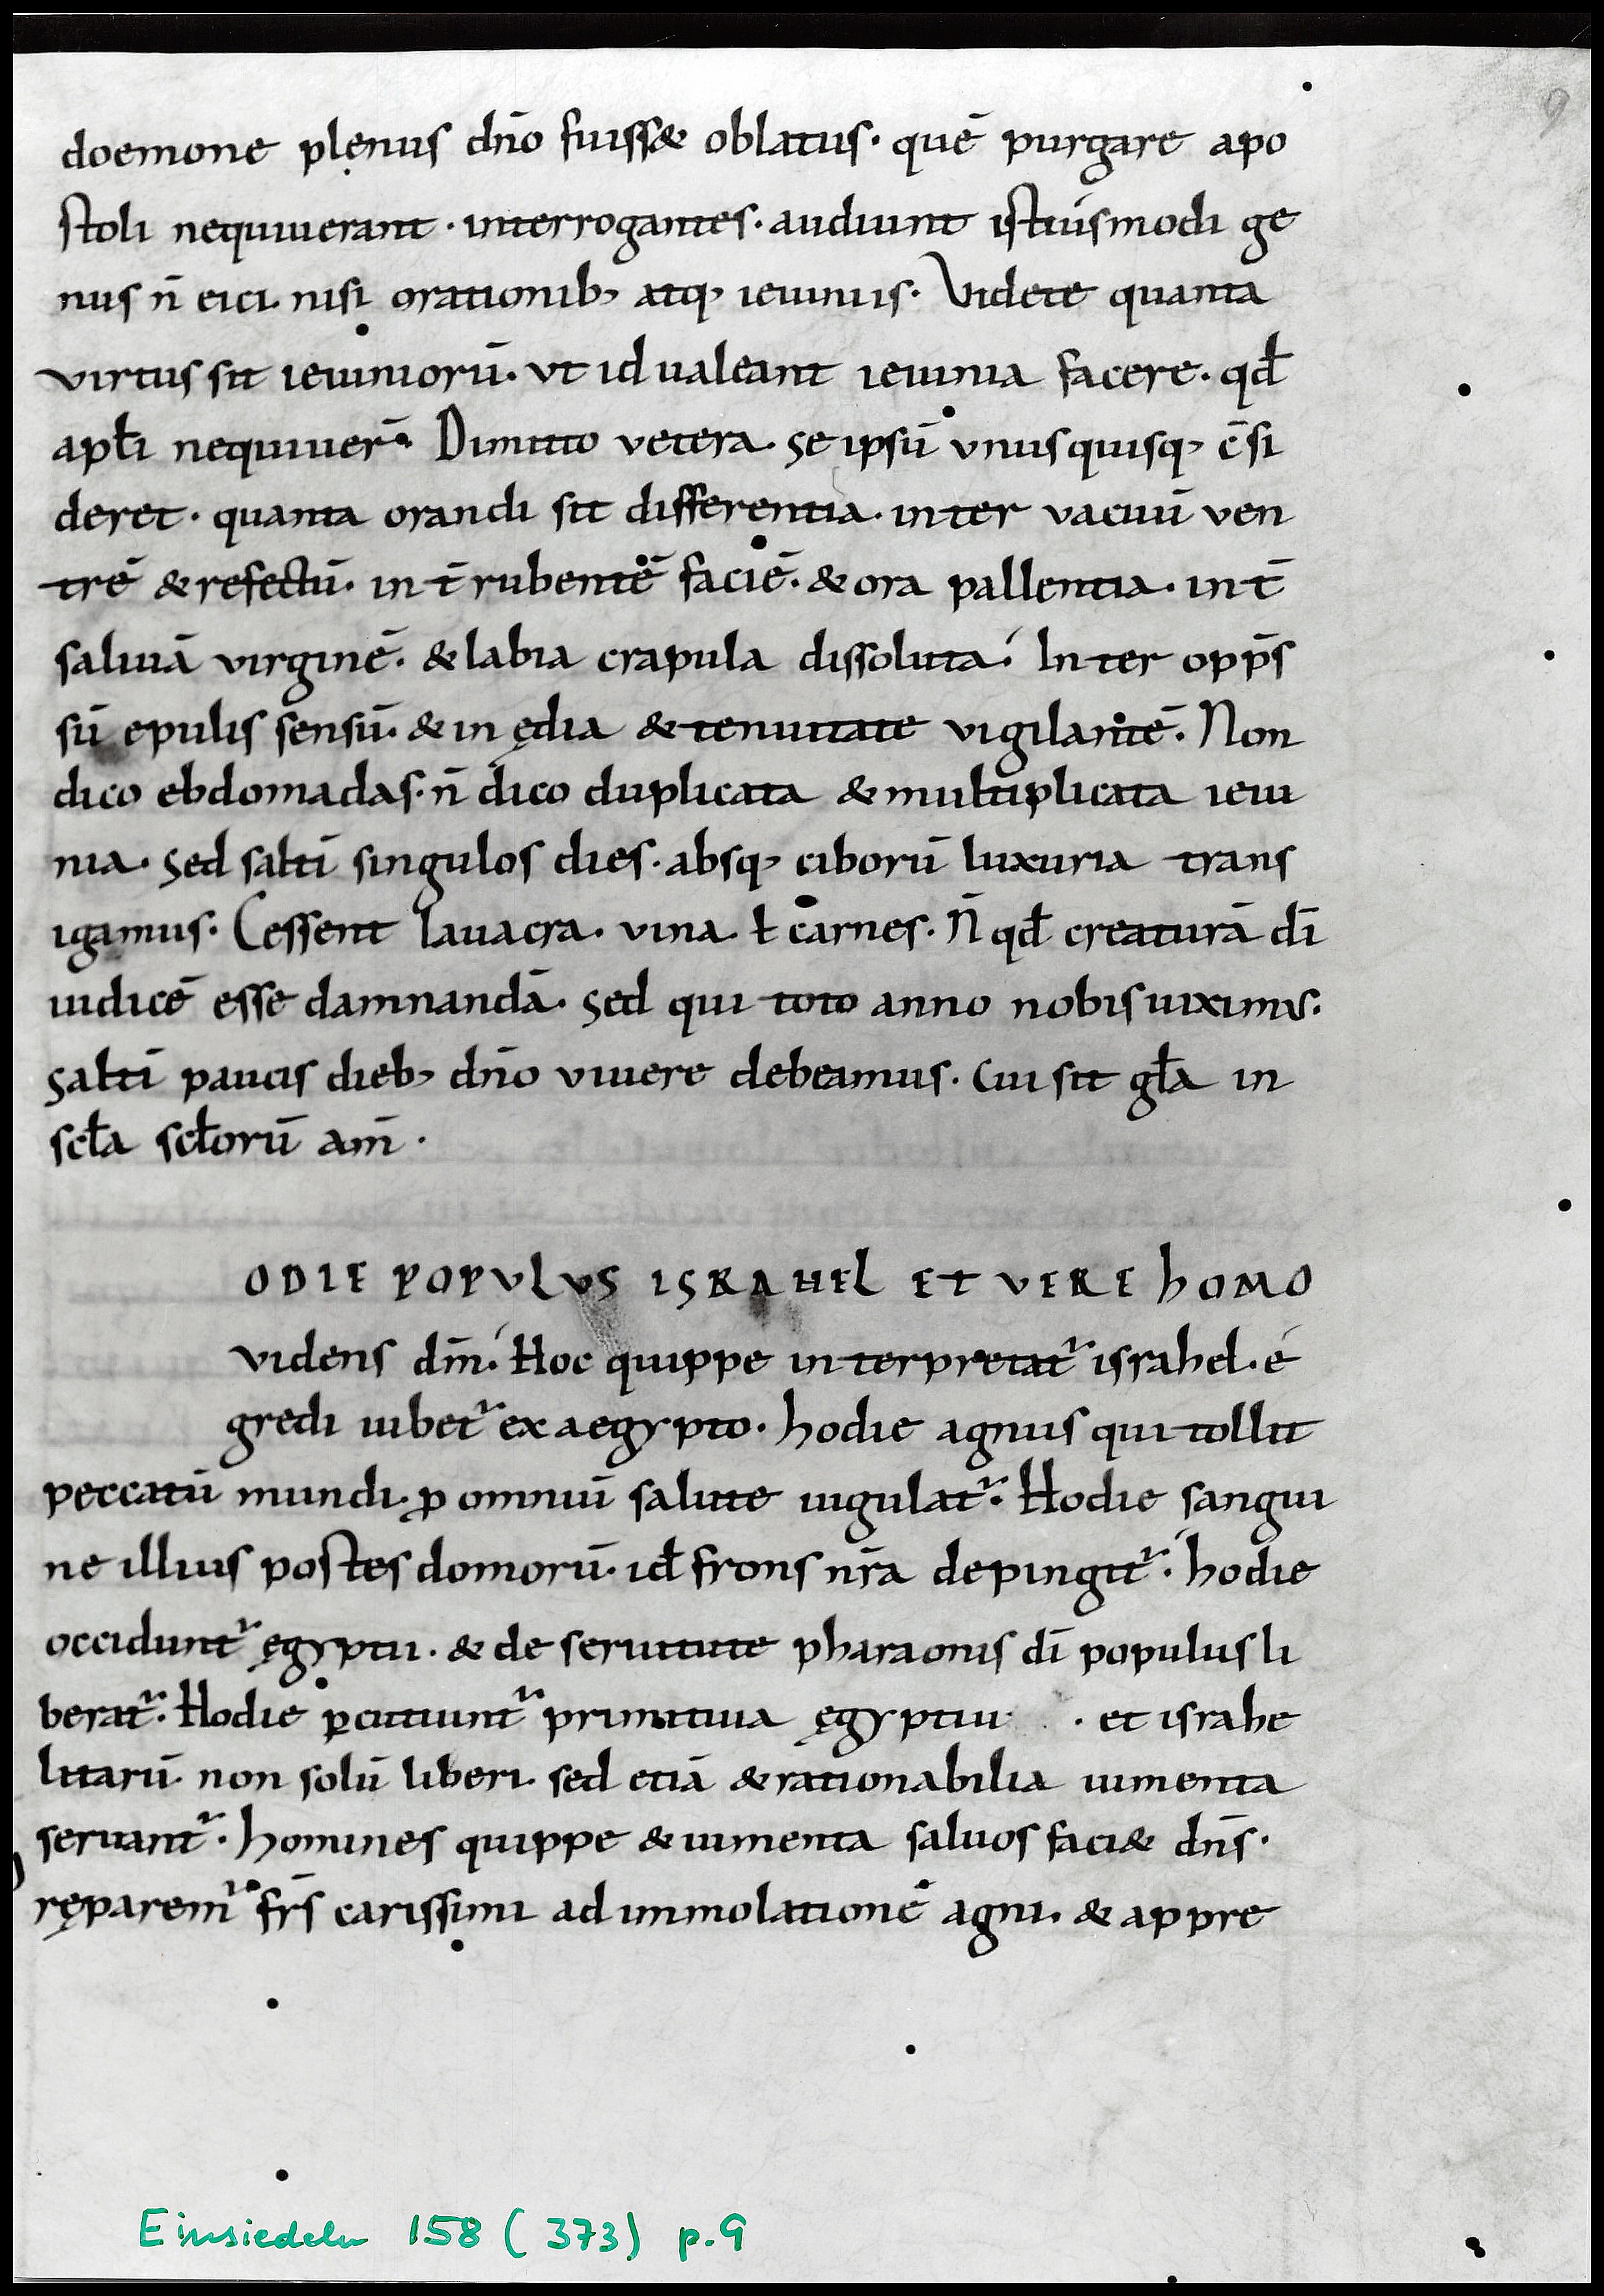 9
doemone plęnus dño fuiss& oblatus· quē purgare apo
stoli nequiuerant· interrogantes· audiunt istiúsmodi ge
nus ñ eici· nisi orationib; atq; ieiuniis· Videte quanta
virtus sit ieiuniorū· vt id ualeant ieiunia facere· qđ
apłi nequiuer̄· Dimitto vetera· Se ipsū vnusquisq; c̄si
deret· quanta orandi sit differentia· inter vacuū ven
trē & refectū· int̄ rubentē faciē· & ora pallentia· int̄
saliuā virginē· & labia crapula dissoluta· Inter opp̄s
sū epulis sensū· & inędia & tenuitate vigilantē· Non
dico ebdomadas· ñ dico duplicata & multiplicata ieiu
nia· Sed saltī singulos dies· absq; ciborū luxuria trans
igamus· Cessent lauacra· vina· ł carnes· Ñ qđ creaturā dī
iudicē esse damnandā· Sed qui toto anno nobis uiximus·
Saltī paucis dieb; dño viuere debeamus· Cui sit gła in
scła scłorū am̄·
ODIE POPVLVS ISRAHEL ET VERE hOMO
videns dm̄· Hoc quippe interpretat᷑ israhel· é
gredi iubet᷑ ex aegypto· hodie agnus qui tollit
peccatū mundi· ꝓ omniū salute iugulat᷑· Hodie sangui
ne illius postes domorū· id̄ frons nr̄a depingit᷑· hodie
occidunt᷑ ęgyptii· & de seruitute pharaonis dī populus li
berat᷑· Hodie ꝑcutiunt᷑ primitiua ęgyptiu · et israhe
litarū· non solū liberi· sed etiā & rationabilia iumenta
seruant᷑· homines quippe & iumenta saluos faci& dñs·
ręparem᷑ fr̄s carissimi ad immolationē agni· & appre
Einsiedeln 158 (373) p.9